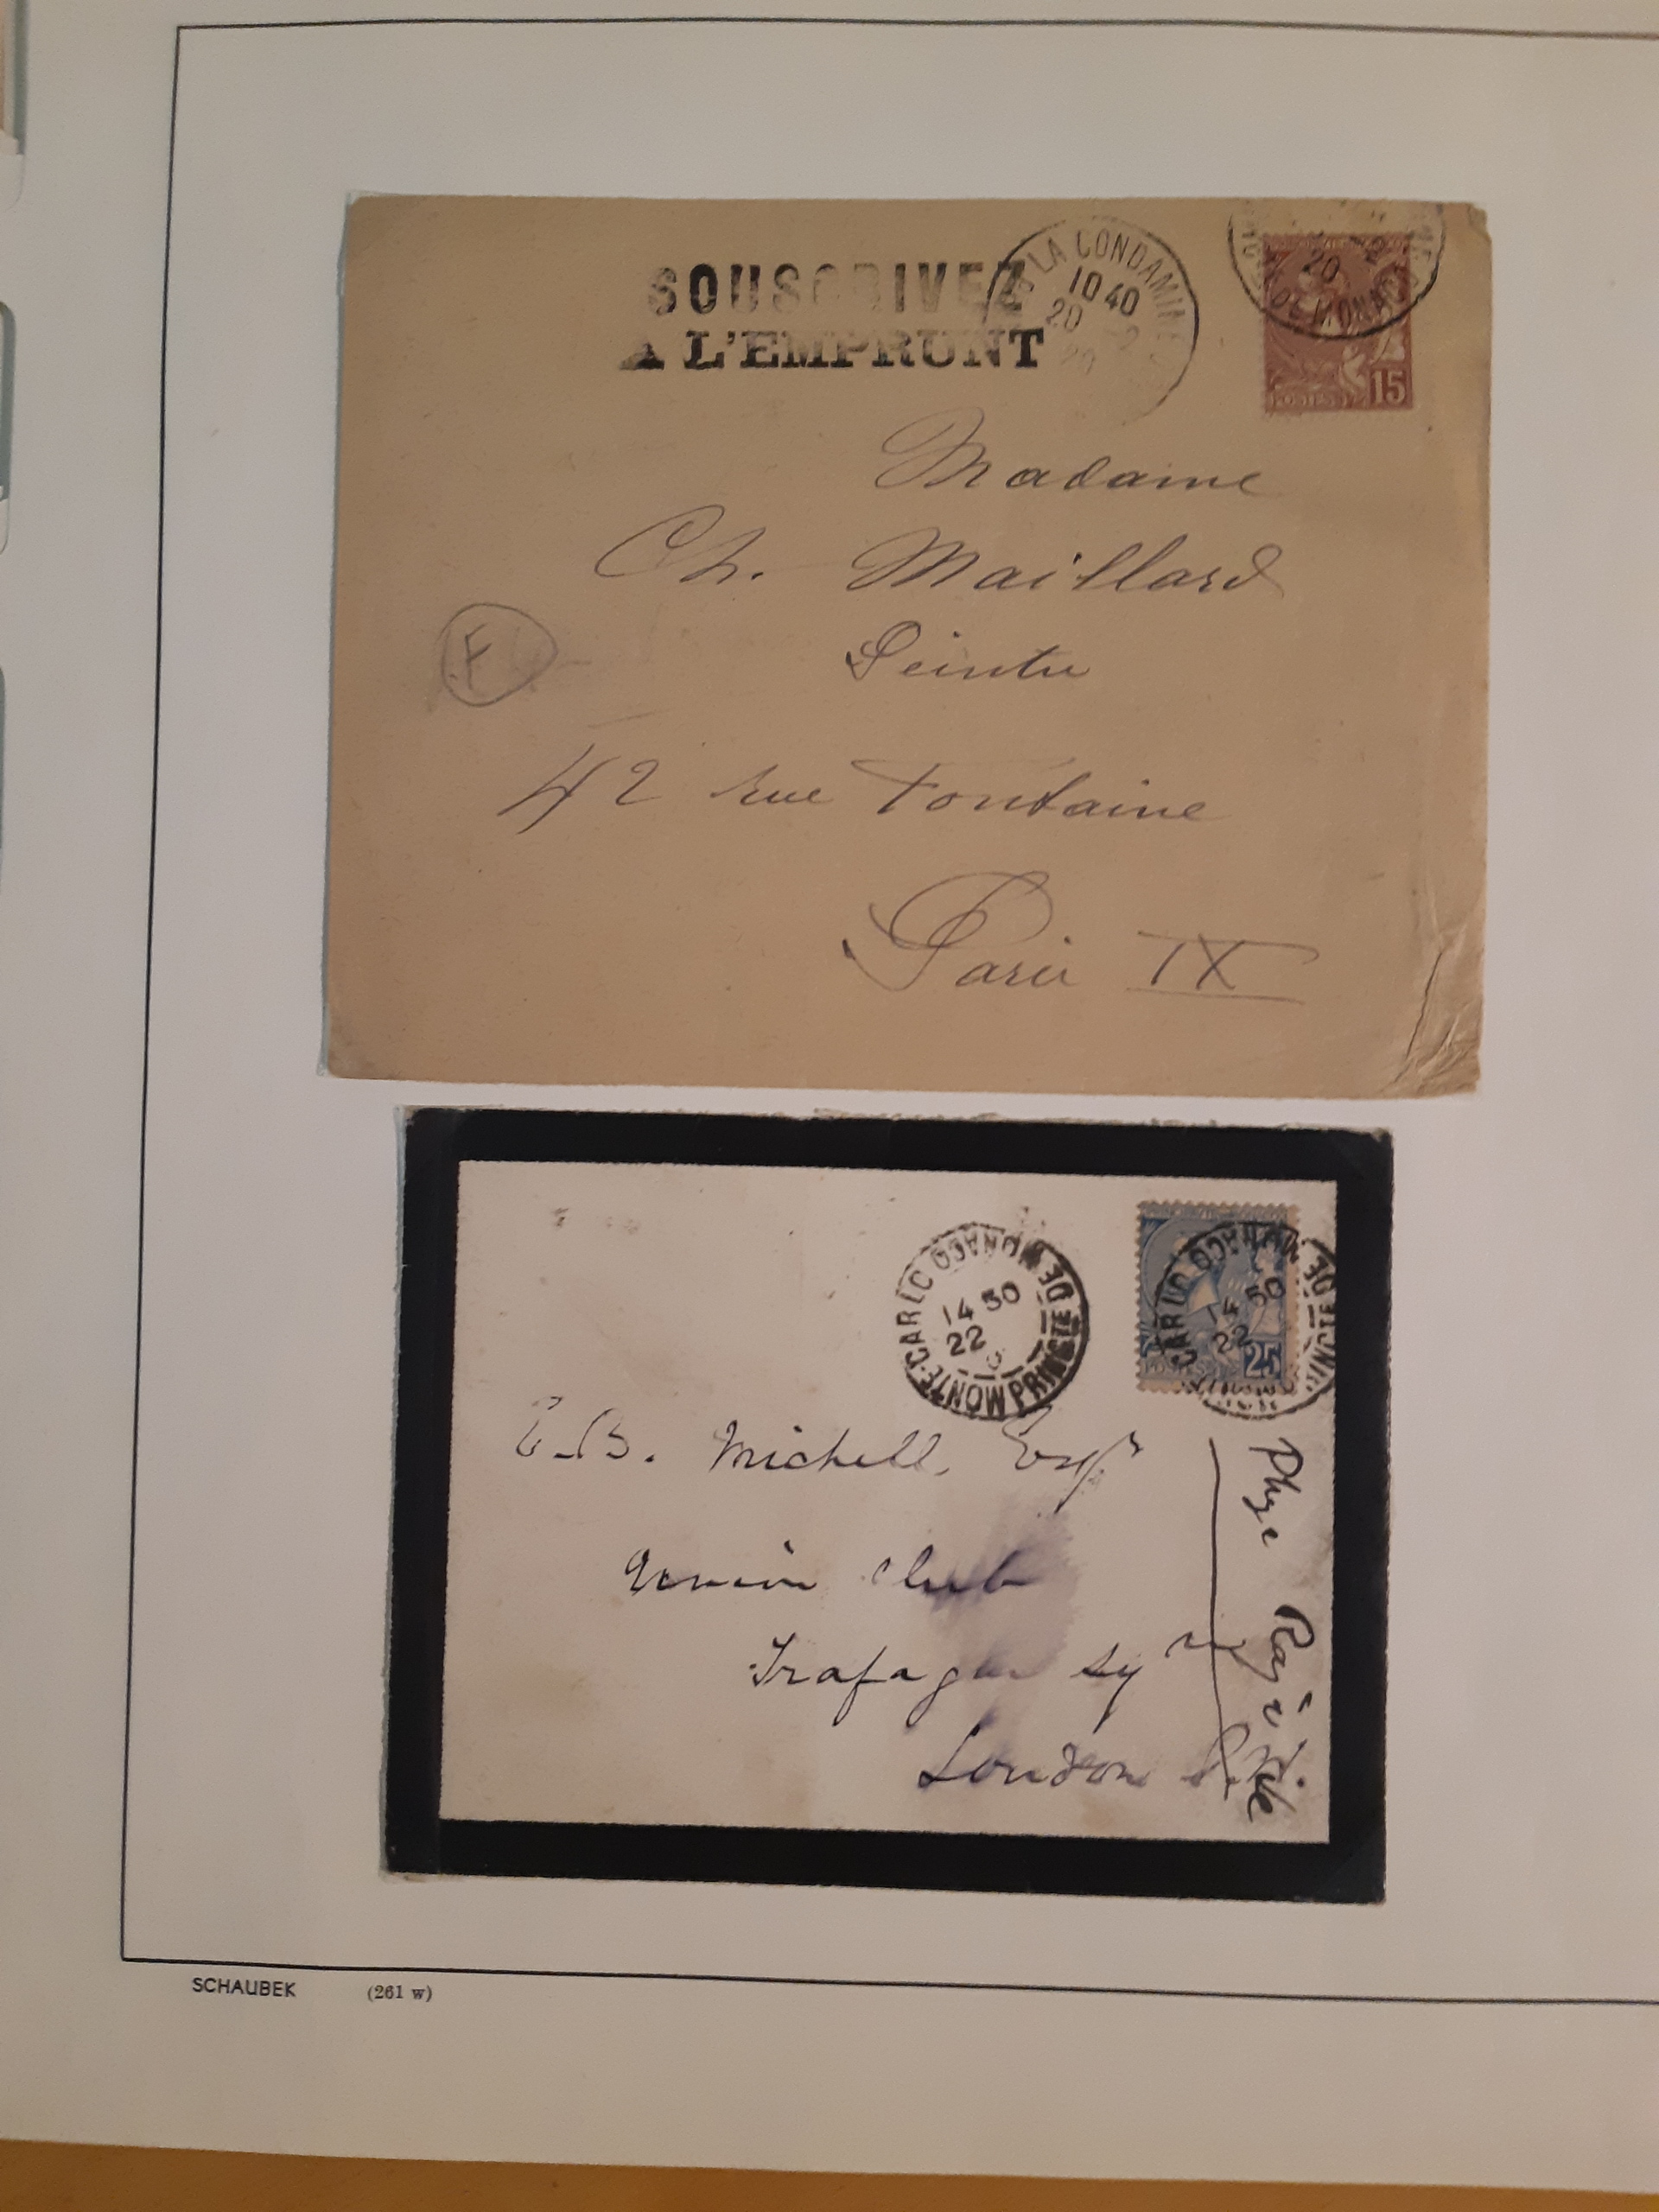 SOUSCRIVEZ
A L'EMPRUNT
LA CONDAMINE
10 40
20 2
20
20
DE MONACO
POSTES 15
Madame
Ch. Maillard
Peintre
F
42 rue Fontaine
Paris IX
MONTE-CARLO PRINCTE DE MONACO
14 30
22
MONACO
CARLO PRINCTE DE
14 30
22
POSTES 25
E.B. Michell, Esqr
Union Club
Trafagar Sqre
London
SCHAUBEK (261 w)